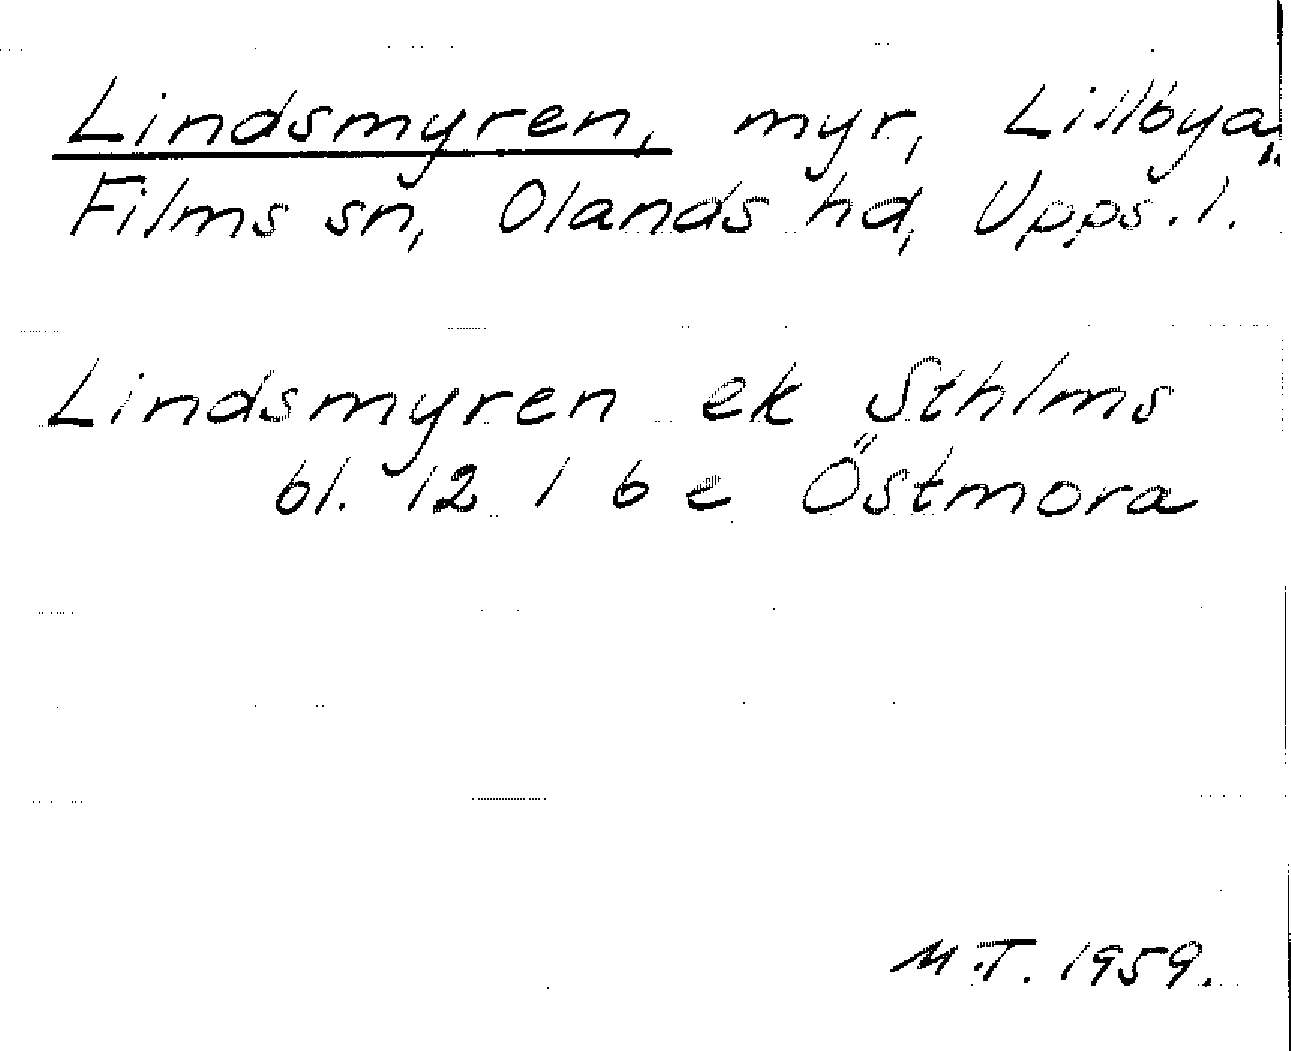 Lindsmyren, myr, Lillbya,
Films sn, Olands hd, Upps. l.
Lindsmyren ek Sthlms
bl. 12 1 6 e Östmora
M.T. 1959.